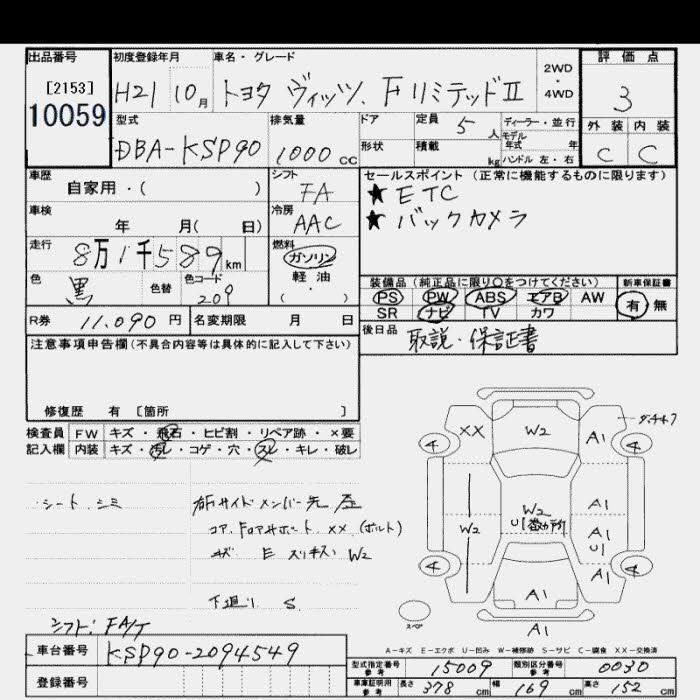 出品番号 初度登録年月 車名・グレード 2WD・4WD 評価点
[2153]
10059
H21 10月 トヨタ ヴィッツ. FリミテッドⅡ 3
型式 排気量 ドア 定員 5人 ディーラー・並行 外装 内装
DBA-KSP90 1000cc 形状 積載 kg モデル年式 年 ハンドル 左・右 C C
車歴 自家用・( ) シフト FA
セールスポイント (正常に機能するものに限ります)
★ ETC
★ バックカメラ
車検 年 月( 日) 冷房 AAC
走行 8万1千589km 燃料 ガソリン 軽油 (・)
色 黒 色替 色コード 209
装備品 (純正品に限り〇をつけてください) 新車保証書
PS PW ABS エアB AW 有・無
SR ナビ TV カワ
R券 11.090円 名変期限 月 日
後日品 取説・保証書
注意事項申告欄 (不具合内容等は具体的に記入して下さい)
修復歴 有 [箇所 ]
検査員 FW キズ・飛石・ヒビ割・リペア跡・×要
記入欄 内装 キズ・汚レ・コゲ・穴・スレ・キレ・破レ
シート シミ
右Fサイドメンバー先 左
コア. Fコアサポート XX (ボルト)
キズ E スリキズ W2
下廻り S
シフト: FA/T
XX W2 A1
4 4
W2 W2 A1
U1 数カ所 A1
U1
A1
4 4
A1
スペア A1
A-キズ E-エクボ U-凹み W-補修跡 S-サビ C-腐食 XX-交換済
車台番号 KSP90-2094549
登録番号
型式指定番号 参考 15009 類別区分番号 参考 0030
車庫証明用 参考 長さ 378cm 幅 169cm 高さ 152cm